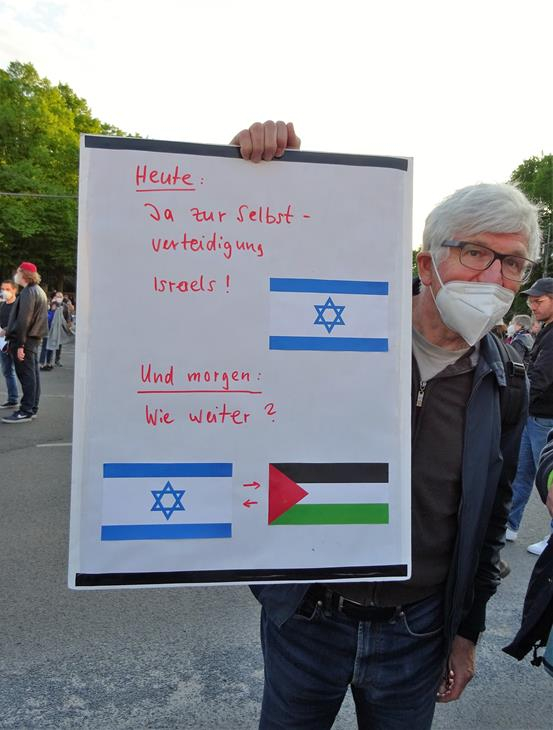 Heute:
Ja zur Selbst-
verteidigung
Israels!
Und morgen:
Wie weiter?